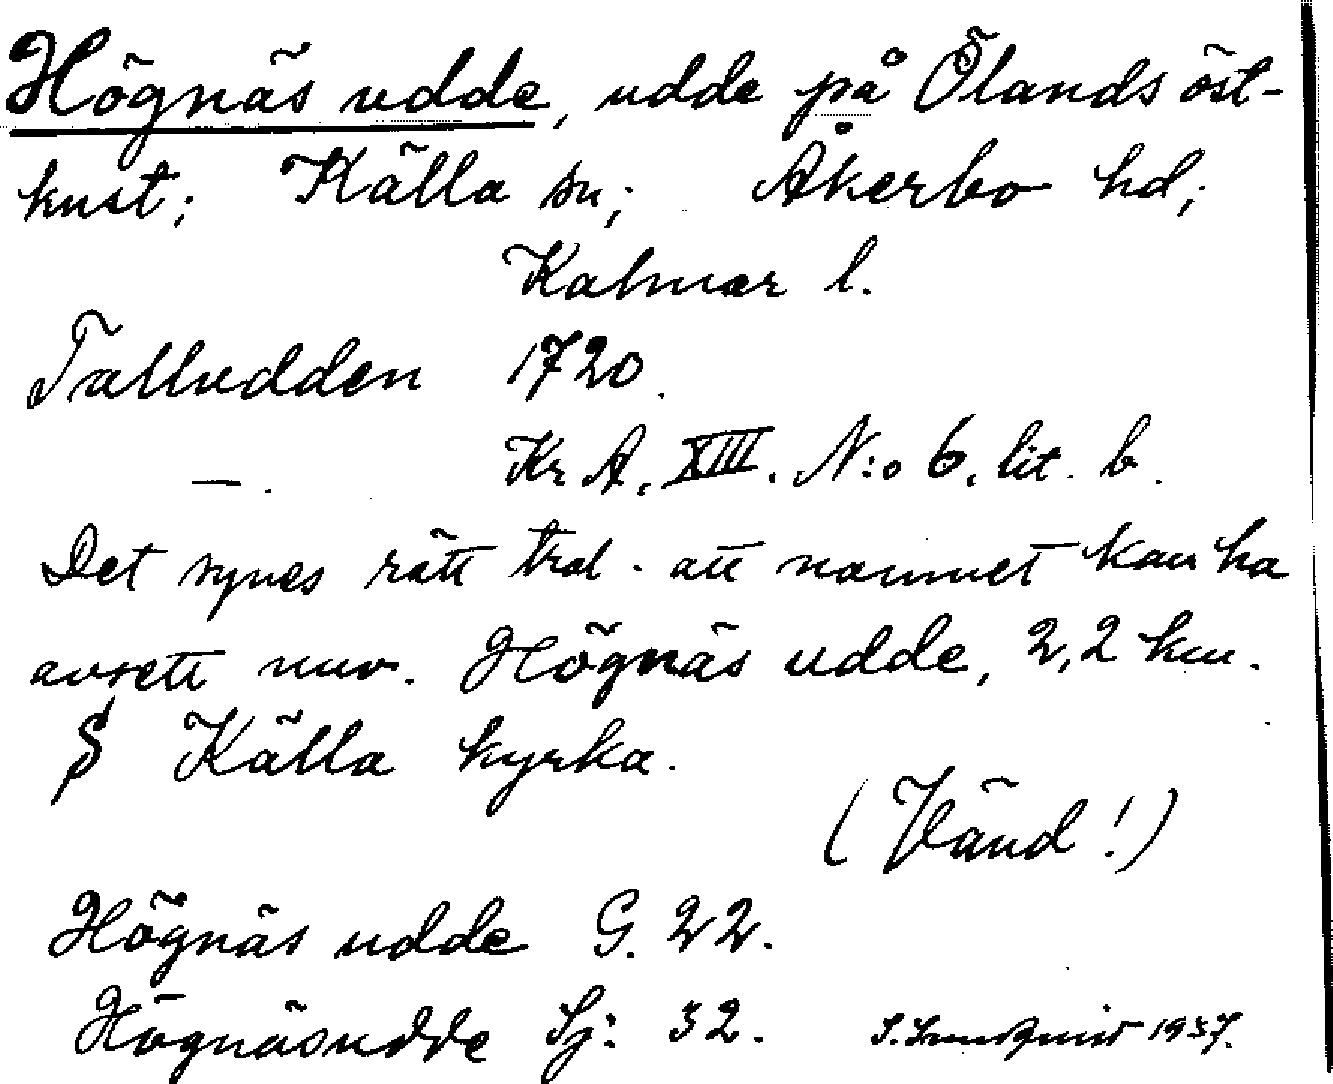 Högnäs udde, udde på Ölands öst-
kust; Källa sn; Åkerbo hd;
Kalmar l.
Talludden 1720.
—. Kr. A. XIII. N:o 6. lit. b.
Det synes rätt trol. att namnet kan ha
avsett nuv. Högnäs udde, 2,2 km.
S Källa kyrka.
(Vänd!)
Högnäs udde G. 22.
Högnäsudde Sj: 32. S. Lundquist 1937.